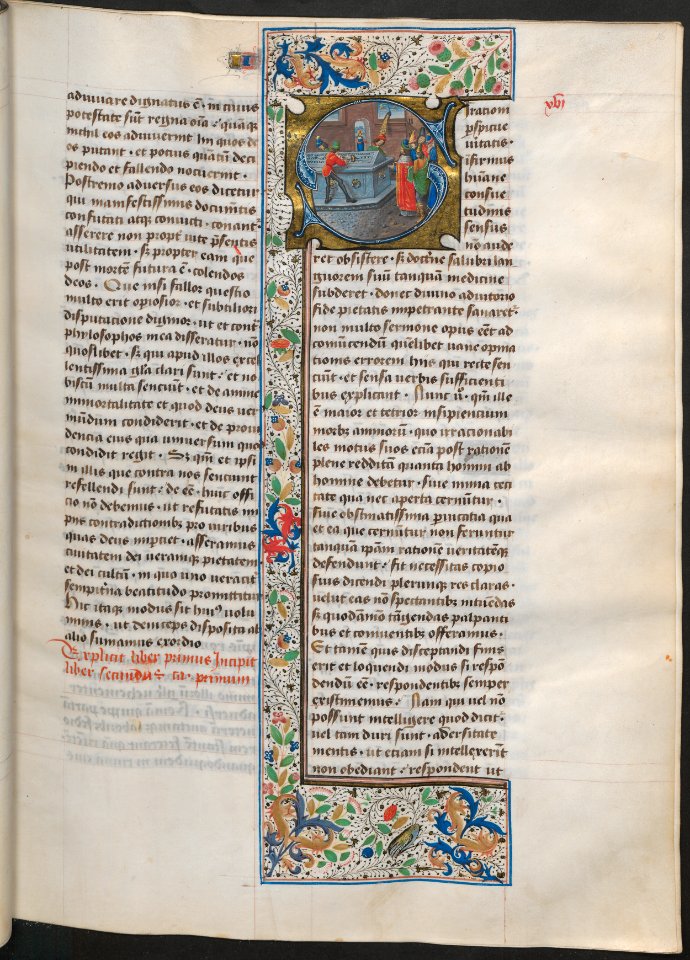 adiuuare dignatus ē · in cuius
potestate sūt regna oīa · quāq̄
nichil eos adiuuerint hij quos de
os putant · et potius quātū deci
piendo et fallendo nocuerint ·
Postremo aduersus eos dicetur
qui manifestissimis documētis
confutati atq̄ conuicti · conant᷑
asserere non propt̄ vite p̄sentis
vtilitatem · sz propter eam que
post mortē futura ē · colendos
deos · Que nisi fallor questio
multo erit opiosior · et subtiliori
disputacione dignior · vt et cont̄
phylosophos in ea disseratur · nō
quoslibet · sz qui apud illos excel
lentissima gl̄a clari sunt · et no
biscū multa senciunt · et de anime
immortalitate et quod deus ver
mūdum condiderit · et de proui
dencia eius qua vniuersum quod
condidit regit · Sz qm̄ et ipsi
in illis que contra nos senciunt
refellendi sunt · de eē · huic offi
cio nō debemus · vt refutatis im
piis contradictionibz pro viribus
quas deus impciet · asseramus
ciuitatem dei veramqz pietatem ·
et dei cultū · in quo vno veracit̄
sempit̄na beatitudo promittitur
Hic itaqz modus sit huiꝰ volu
minis · vt deinceps disposita ab
alio sumamus exordio
Explicit liber primus Incipit
liber secundus · ca᷑ · primum
xvi
S
i ratiom
p̄spicue
uitatis ·
ifirmus
hūane
consue
tudinis
sensus
nō aude
ret obsistere · sz doct̄ne salubri lan
guorem suū tanquam medicine
subderet · donec diuino adiutorio
fide pietatis impetrante sanaret᷑ ·
non multo sermone opus eēt ad
cōuincendum quēlibet vane opina
tionis errorem hiis qui recte sen
ciūt · et sensa verbis sufficienti
bus explicant · Nunc ũ · qm̄ ille
ē maior et tetrior insipiencium
morbz animorū · quo irracionabi
les motus suos eciā post ratione
plene redditā quanta homini ab
homine debetur · siue nimia ceci
tate qua nec aperta cernūtur ·
siue obstinatissima p̄uicatia qua
et ea que cernūtur non feruntur
tanquam ip̄am rationē veritatēqz
defendunt · fit necessitas copio
sius dicendi plerunque res claras ·
velut eas nō spectantibus intuēdas
sz quodāmō tāgendas palpanti
bus et coniuentibz offeramus ·
Et tamē quis disceptandi finis
erit et loquendi modus si respō
dendū eē · respondentibz semper
existimemus · Nam qui vel nō
possunt intelligere quod dicit᷑ ·
vel tam duri sunt · adersitate
mentis · vt etiam si intellexerīt
non obediant · respondent vt